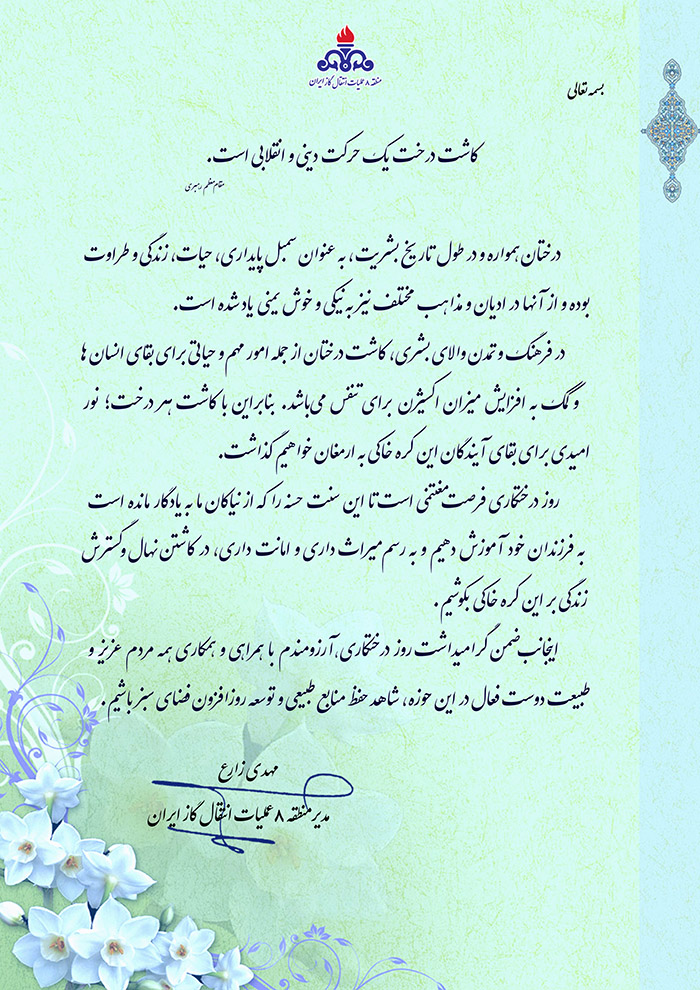 منطقه ۸ عملیات انتقال گاز ایران
بسمه تعالی
کاشت درخت یک حرکت دینی و انقلابی است.
مقام معظم رهبری
درختان همواره و در طول تاریخ بشریت، به عنوان سمبل پایداری، حیات، زندگی و طراوت
بوده و از آنها در ادیان و مذاهب مختلف نیز به نیکی و خوش یمنی یاد شده است.
در فرهنگ و تمدن والای بشری، کاشت درختان از جمله امور مهم و حیاتی برای بقای انسان ها
و کمک به افزایش میزان اکسیژن برای تنفس می‌باشد. بنابراین با کاشت هر درخت؛ نور
امیدی برای بقای آیندگان این کره خاکی به ارمغان خواهیم گذاشت.
روز درختکاری فرصت مغتنمی است تا این سنت حسنه را که از نیاکان ما به یادگار مانده است
به فرزندان خود آموزش دهیم و به رسم میراث داری و امانت داری، در کاشتن نهال و گسترش
زندگی بر این کره خاکی بکوشیم.
اینجانب ضمن گرامیداشت روز درختکاری، آرزومندم با همراهی و همکاری همه مردم عزیز و
طبیعت دوست فعال در این حوزه، شاهد حفظ منابع طبیعی و توسعه روزافزون فضای سبز باشیم.
مهدی زارع
مدیر منطقه ۸ عملیات انتقال گاز ایران